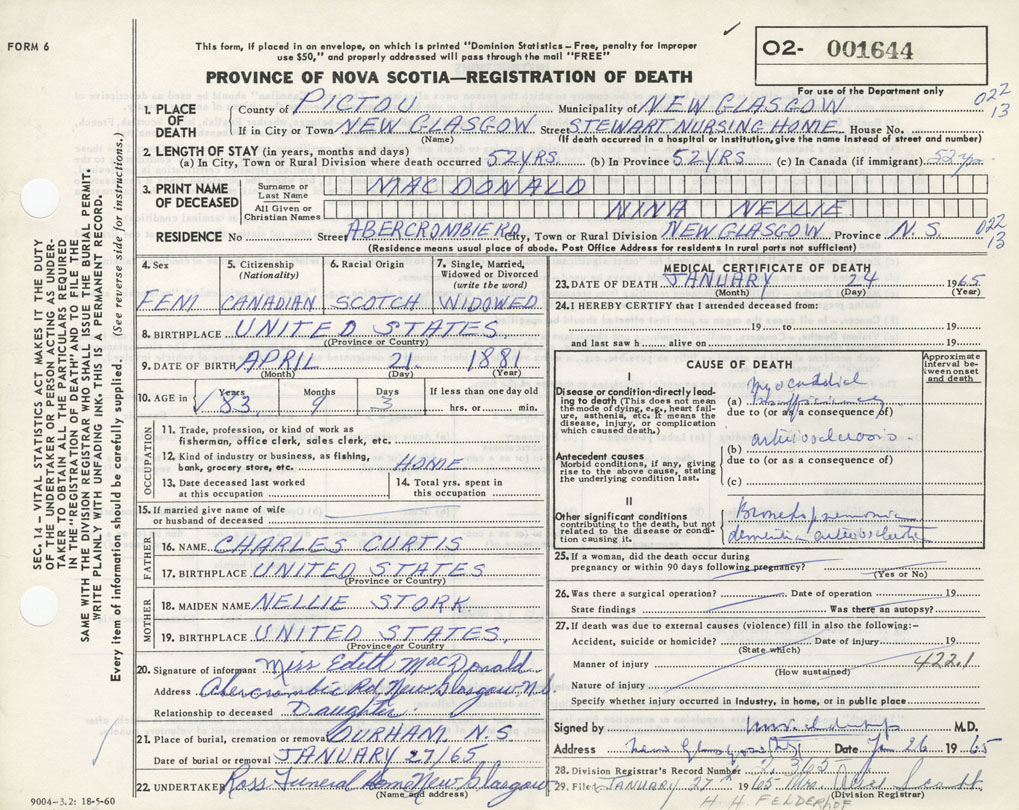 FORM 6
This form, if placed in an envelope, on which is printed "Dominion Statistics – Free, penalty for improper
use $50," and properly addressed will pass through the mail "FREE"
O2- 001644
PROVINCE OF NOVA SCOTIA—REGISTRATION OF DEATH
For use of the Department only
022
13
1. PLACE OF DEATH
County of PICTOU Municipality of NEW GLASGOW
If in City or Town NEW GLASGOW Street STEWART NURSING HOME House No.
(Name) (If death occurred in a hospital or institution, give the name instead of street and number)
2. LENGTH OF STAY (in years, months and days)
(a) In City, Town or Rural Division where death occurred 52 YRS (b) In Province 52 YRS (c) In Canada (if immigrant) 52 yrs
3. PRINT NAME OF DECEASED
Surname or Last Name MAC DONALD
All Given or Christian Names NINA NELLIE
RESIDENCE No Street ABERCROMBIE RD City, Town or Rural Division NEW GLASGOW Province N. S.
022
13
(Residence means usual place of abode. Post Office Address for residents in rural parts not sufficient)
4. Sex FEM
5. Citizenship (Nationality) CANADIAN
6. Racial Origin SCOTCH
7. Single, Married, Widowed or Divorced (write the word) WIDOWED
8. BIRTHPLACE UNITED STATES
(Province or Country)
9. DATE OF BIRTH APRIL 21 1881
(Month) (Day) (Year)
10. AGE in Years 83 Months 9 Days 3 If less than one day old hrs. or min.
OCCUPATION
11. Trade, profession, or kind of work as
fisherman, office clerk, sales clerk, etc.
12. Kind of industry or business, as fishing,
bank, grocery store, etc. HOME
13. Date deceased last worked
at this occupation
14. Total yrs. spent in
this occupation
15. If married give name of wife
or husband of deceased
FATHER
16. NAME CHARLES CURTIS
17. BIRTHPLACE UNITED STATES
(Province or Country)
MOTHER
18. MAIDEN NAME NELLIE STORK
19. BIRTHPLACE UNITED STATES.
(Province or Country
20. Signature of informant Miss Edith MacDonald
Address Abercrombie Rd, New Glasgow N.S.
Relationship to deceased Daughter
21. Place of burial, cremation or removal DURHAM, N.S.
Date of burial or removal JANUARY 27/65
22. UNDERTAKER Ross Funeral Home New Glasgow
(Name and address)
9004-3.2: 18-5-60
MEDICAL CERTIFICATE OF DEATH
23. DATE OF DEATH JANUARY 24 1965
(Month) (Day) (Year)
24. I HEREBY CERTIFY that I attended deceased from:
19 to 19
and last saw h alive on 19
CAUSE OF DEATH
Approximate interval between onset and death
I
Disease or condition directly leading to death (This does not mean the mode of dying, e.g., heart failure, asthenia, etc. It means the disease, injury, or complication which caused death.)
(a) Myocardial insufficiency
due to (or as a consequence of)
Antecedent causes
Morbid conditions, if any, giving rise to the above cause, stating the underlying condition last.
(b) arteriosclerosis
due to (or as a consequence of)
(c)
II
Other significant conditions
contributing to the death, but not related to the disease or condition causing it.
Bronchopneumonia
dementia arteriosclerotic
25. If a woman, did the death occur during
pregnancy or within 90 days following pregnancy?
(Yes or No)
26. Was there a surgical operation? Date of operation 19
State findings Was there an autopsy?
27. If death was due to external causes (violence) fill in also the following:-
Accident, suicide or homicide? Date of injury 19
(State which)
Manner of injury 422.1
(How sustained)
Nature of injury
Specify whether injury occurred in Industry, in home, or in public place
Signed by M.D.
Address New Glasgow NS Date Jan 26 1965
28. Division Registrar's Record Number
29. Filed JANUARY 27th 1965
(Division Registrar)
H. H. FELDERHOF
SEC. 14 – VITAL STATISTICS ACT MAKES IT THE DUTY
OF THE UNDERTAKER OR PERSON ACTING AS UNDER-
TAKER TO OBTAIN ALL THE PARTICULARS REQUIRED
IN THE "REGISTRATION OF DEATH" AND TO FILE THE
SAME WITH THE DIVISION REGISTRAR WHO SHALL ISSUE THE BURIAL PERMIT.
WRITE PLAINLY WITH UNFADING INK. THIS IS A PERMANENT RECORD.
Every item of information should be carefully supplied. (See reverse side for instructions.)